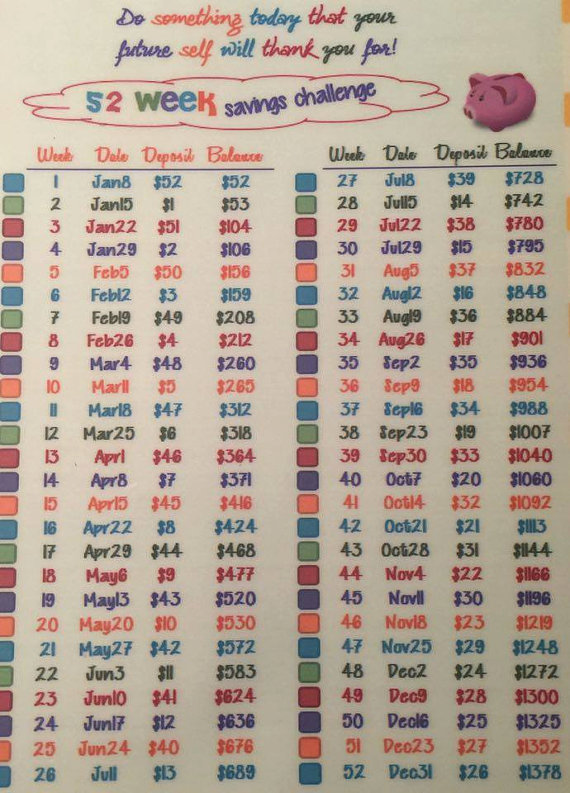 Do something today that your
future self will thank you for!
52 week savings challenge
Week Date Deposit Balance
1 Jan8 $52 $52
2 Jan15 $1 $53
3 Jan22 $51 $104
4 Jan29 $2 $106
5 Feb5 $50 $156
6 Feb12 $3 $159
7 Feb19 $49 $208
8 Feb26 $4 $212
9 Mar4 $48 $260
10 Mar11 $5 $265
11 Mar18 $47 $312
12 Mar25 $6 $318
13 Apr1 $46 $364
14 Apr8 $7 $371
15 Apr15 $45 $416
16 Apr22 $8 $424
17 Apr29 $44 $468
18 May6 $9 $477
19 May13 $43 $520
20 May20 $10 $530
21 May27 $42 $572
22 Jun3 $11 $583
23 Jun10 $41 $624
24 Jun17 $12 $636
25 Jun24 $40 $676
26 Jul1 $13 $689
Week Date Deposit Balance
27 Jul8 $39 $728
28 Jul15 $14 $742
29 Jul22 $38 $780
30 Jul29 $15 $795
31 Aug5 $37 $832
32 Aug12 $16 $848
33 Aug19 $36 $884
34 Aug26 $17 $901
35 Sep2 $35 $936
36 Sep9 $18 $954
37 Sep16 $34 $988
38 Sep23 $19 $1007
39 Sep30 $33 $1040
40 Oct7 $20 $1060
41 Oct14 $32 $1092
42 Oct21 $21 $1113
43 Oct28 $31 $1144
44 Nov4 $22 $1166
45 Nov11 $30 $1196
46 Nov18 $23 $1219
47 Nov25 $29 $1248
48 Dec2 $24 $1272
49 Dec9 $28 $1300
50 Dec16 $25 $1325
51 Dec23 $27 $1352
52 Dec31 $26 $1378